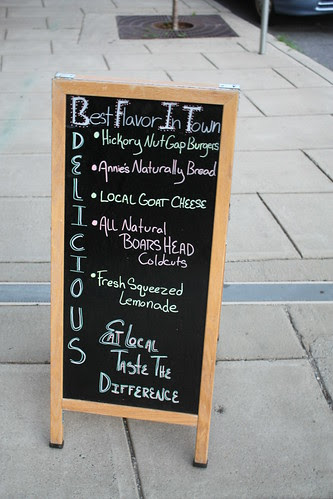 Best Flavor In Town
DELICIOUS
• Hickory Nut Gap Burgers
• Annie's Naturally Bread
• Local Goat Cheese
• All Natural
BOARS HEAD
Coldcuts
• Fresh Squeezed
Lemonade
Eat Local
Taste The
Difference